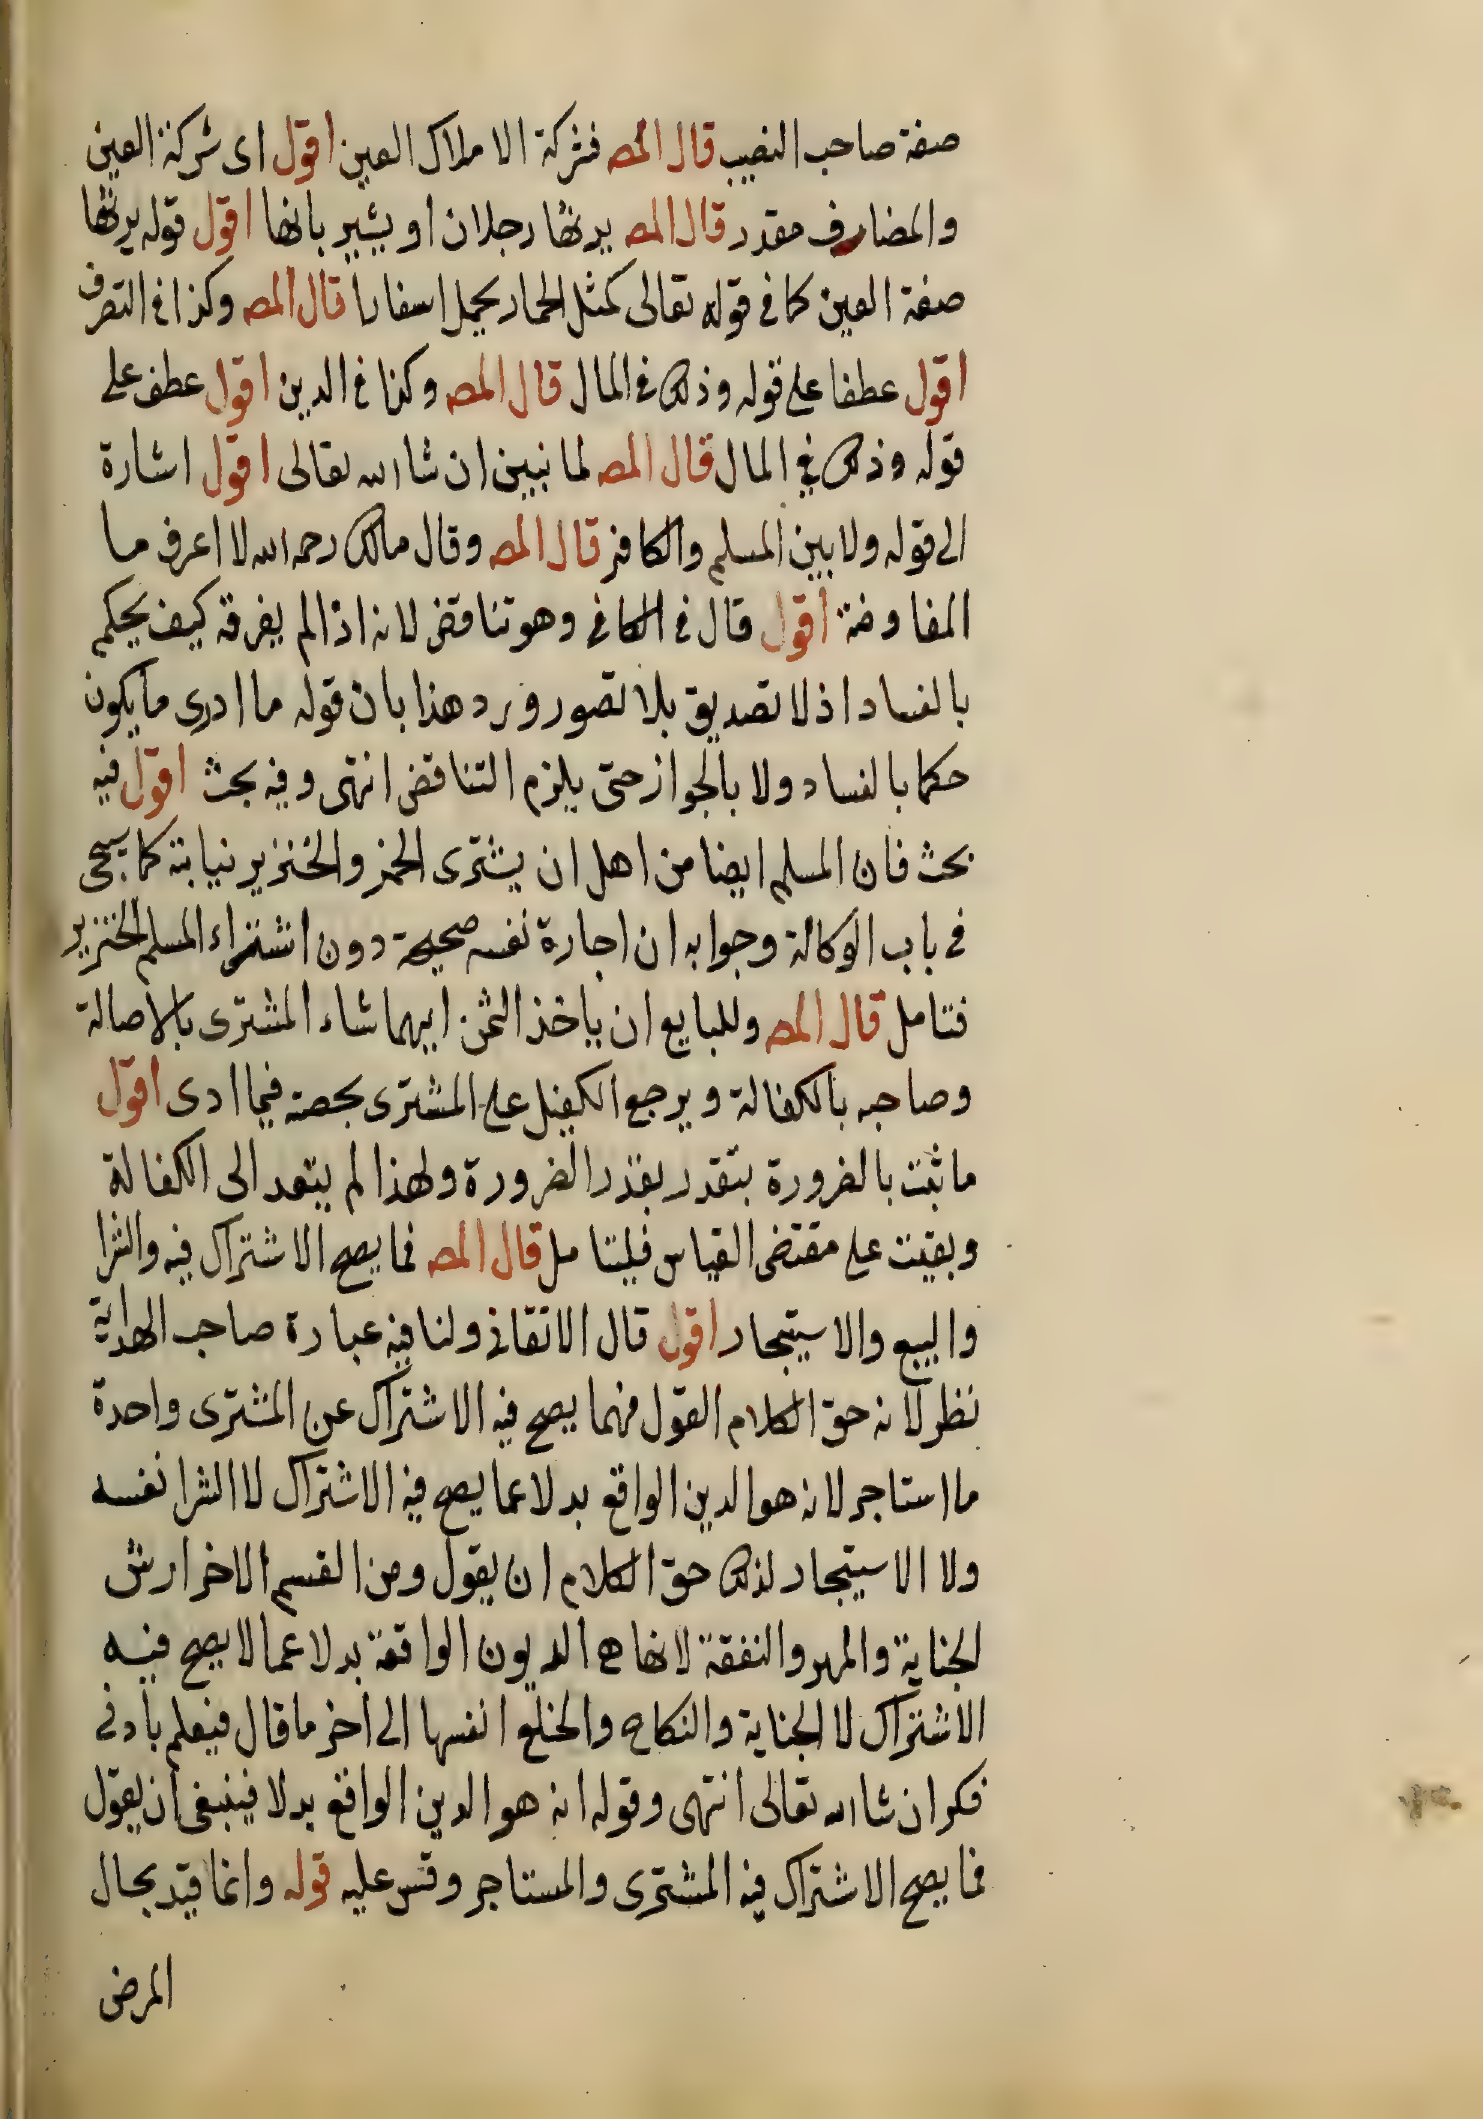 صفة صاحب النصيب قال المص فشركة الاملاك العين اقول اى شركة العين
والمضاف مقدر قال المص يرثها رجلان او يشير بانها اقول قوله يرثها
صفة العين كما فى قوله تعالى كمثل الحمار يحمل اسفارا قال المص وكذا فى التصرف
اقول عطفا على قوله وذلك فى المال قال المص وكذا فى الدين اقول عطف على
قوله وذلك فى المال قال المص لما نبين ان شا الله تعالى اقول اشارة
الى قوله ولا بين المسلم والكافر قال المص وقال مالك رحمه الله لا اعرف ما
المفاوضة اقول قال فى الكافى وهو تناقض لانه اذا لم يعرفه كيف يحكم
بالفساد اذ لا تصديق بلا تصور ورد هذا بان قوله ما ادرى ما يكون
حكما بالفساد ولا بالجواز حتى يلزم التناقض انتهى وفيه بحث اقول فيه
بحث فان المسلم ايضا من اهل ان يشترى الخمر والخنزير نيابة كما سيجى
فى باب الوكالة وجوابه ان اجارة نفسه صحيحة دون اشتراء المسلم الخنزير
فتامل قال المص وللبايع ان ياخذ الثمن ايهما شاء المشترى بالاصالة
وصاحبه بالكفالة ويرجع الكفيل على المشترى بحصته فيما ادى اقول
ما ثبت بالضرورة يتقدر بقدر الضرورة ولهذا لم يتعد الى الكفالة
وبقيت على مقتضى القياس فليتامل قال المص فما يصح الاشتراك فيه والشرا
والبيع والاستيجار اقول قال الاتقانى ولنا فيه عبارة صاحب الهداية
نظر لانه حق الكلام القول فهما يصح فيه الاشتراك عن المشترى واحدة
ما استاجر لانه هو الدين الواقع بدلا عما يصح فيه الاشتراك لا الشرا نفسه
ولا الاستيجار لذلك حق الكلام ان يقول ومن القسم الاخر ارش
الجناية والمهر والنفقة لانها هى الديون الواقعة بدلا عما لا يصح فيه
الاشتراك لا الجناية والنكاح والخلع انفسها الى اخر ما قال فيعلم بادنى
فكر ان شا الله تعالى انتهى وقوله انه هو الدين الواقع بدلا فينبغى ان يقول
فما يصح الاشتراك فيه المشترى والمستاجر وقس عليه قوله وانما قيد بحال
المرض